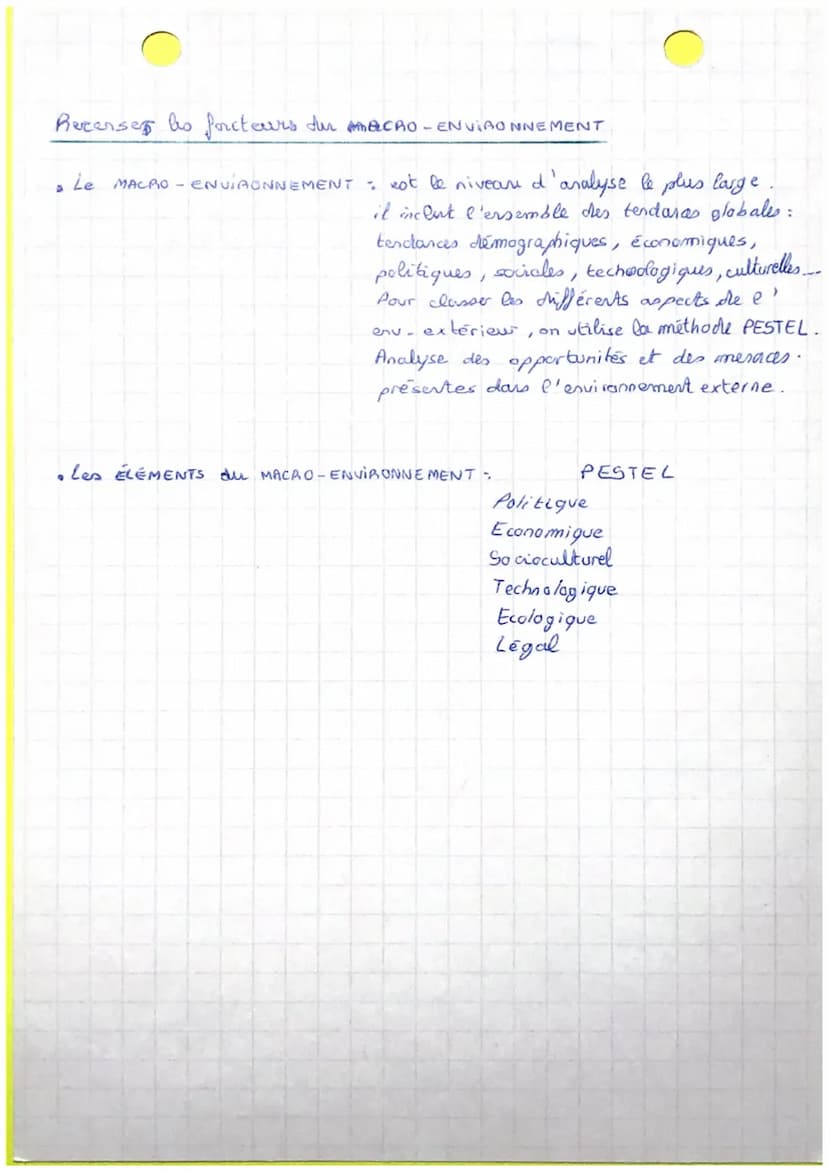 Recenser les facteurs du MACRO-ENVIRONNEMENT
• Le MACRO-ENVIRONNEMENT : est le niveau d'analyse le plus large.
il inclut l'ensemble des tendances globales :
tendances démographiques, Économiques,
politiques, sociales, technologiques, culturelles...
Pour classer les différents aspects de l'
env. extérieur, on utilise la méthode PESTEL.
Analyse des opportunités et des menaces.
présentes dans l'environnement externe.
• Les ÉLÉMENTS du MACRO-ENVIRONNEMENT : PESTEL
Politique
Economique
Socioculturel
Technologique
Ecologique
Légal